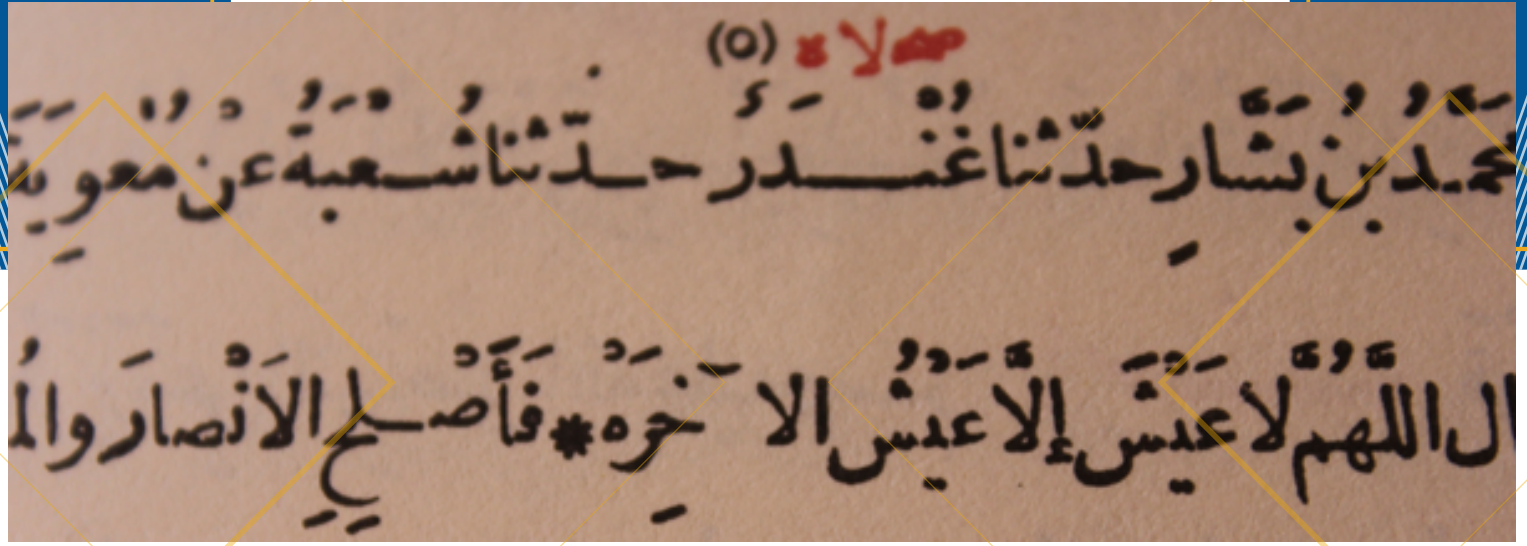 لا (٥)
مُحَمَّدُ بنُ بَشَّارٍ حدّثنا غُنْدَرُ حدّثنا شُعْبَةُ عنْ مُعوِيَةَ
ال اللَّهُمَّ لاَ عَيْشَ إلَّا عَيْشُ الآخِرَهْ * فَأَصْلِحِ الاَنْصارَ والمُ